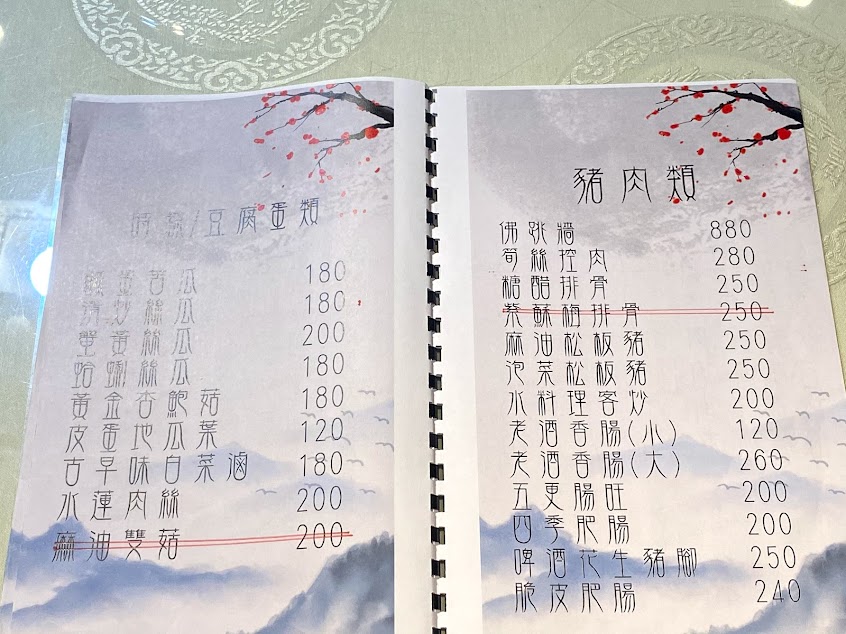 時蔬/豆腐蛋類
鹹蛋苦瓜 180
清炒絲瓜 180
蟹黃絲瓜 200
蛤蜊絲瓜 180
黃金杏鮑菇 180
皮蛋地瓜葉 120
古早味白菜滷 180
水蓮肉絲 200
麻油雙菇 200
豬肉類
佛跳牆 880
筍絲控肉 280
糖醋排骨 250
紫蘇梅排骨 250
麻油松板豬 250
泡菜松板豬 250
水料理客炒 200
老酒香腸(小) 120
老酒香腸(大) 260
五更腸旺 200
四季肥腸 200
啤酒花生豬腳 250
脆皮肥腸 240